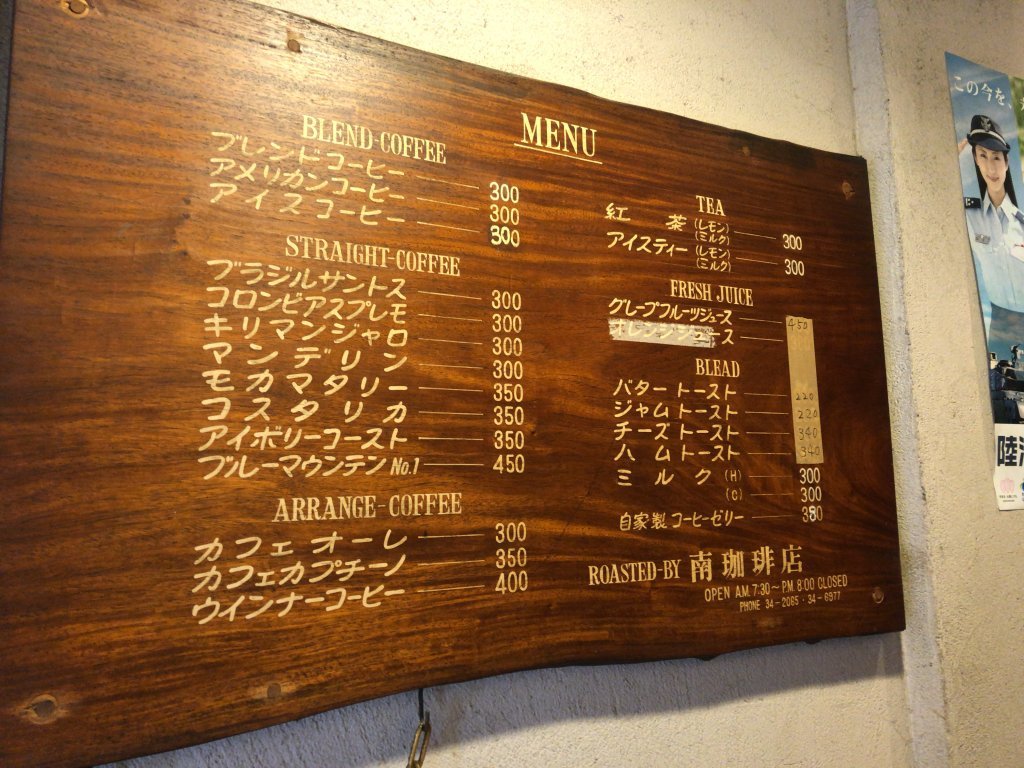 MENU
BLEND-COFFEE
ブレンドコーヒー 300
アメリカンコーヒー 300
アイスコーヒー 300
STRAIGHT-COFFEE
ブラジルサントス 300
コロンビアスプレモ 300
キリマンジャロ 300
マンデリン 300
モカマタリー 350
コスタリカ 350
アイボリーコースト 350
ブルーマウンテン No.1 450
ARRANGE-COFFEE
カフェオーレ 300
カフェカプチーノ 350
ウインナーコーヒー 400
TEA
紅茶 (レモン) (ミルク) 300
アイスティー (レモン) (ミルク) 300
FRESH JUICE
グレープフルーツジュース 450
オレンジジュース
BLEAD
バタートースト 220
ジャムトースト 220
チーズトースト 340
ハムトースト 340
ミルク (H) 300
(C) 300
自家製コーヒーゼリー
ROASTED-BY 南珈琲店
OPEN A.M.7:30~P.M.8:00 CLOSED
PHONE 34-2065・34-6977
この今を、
陸